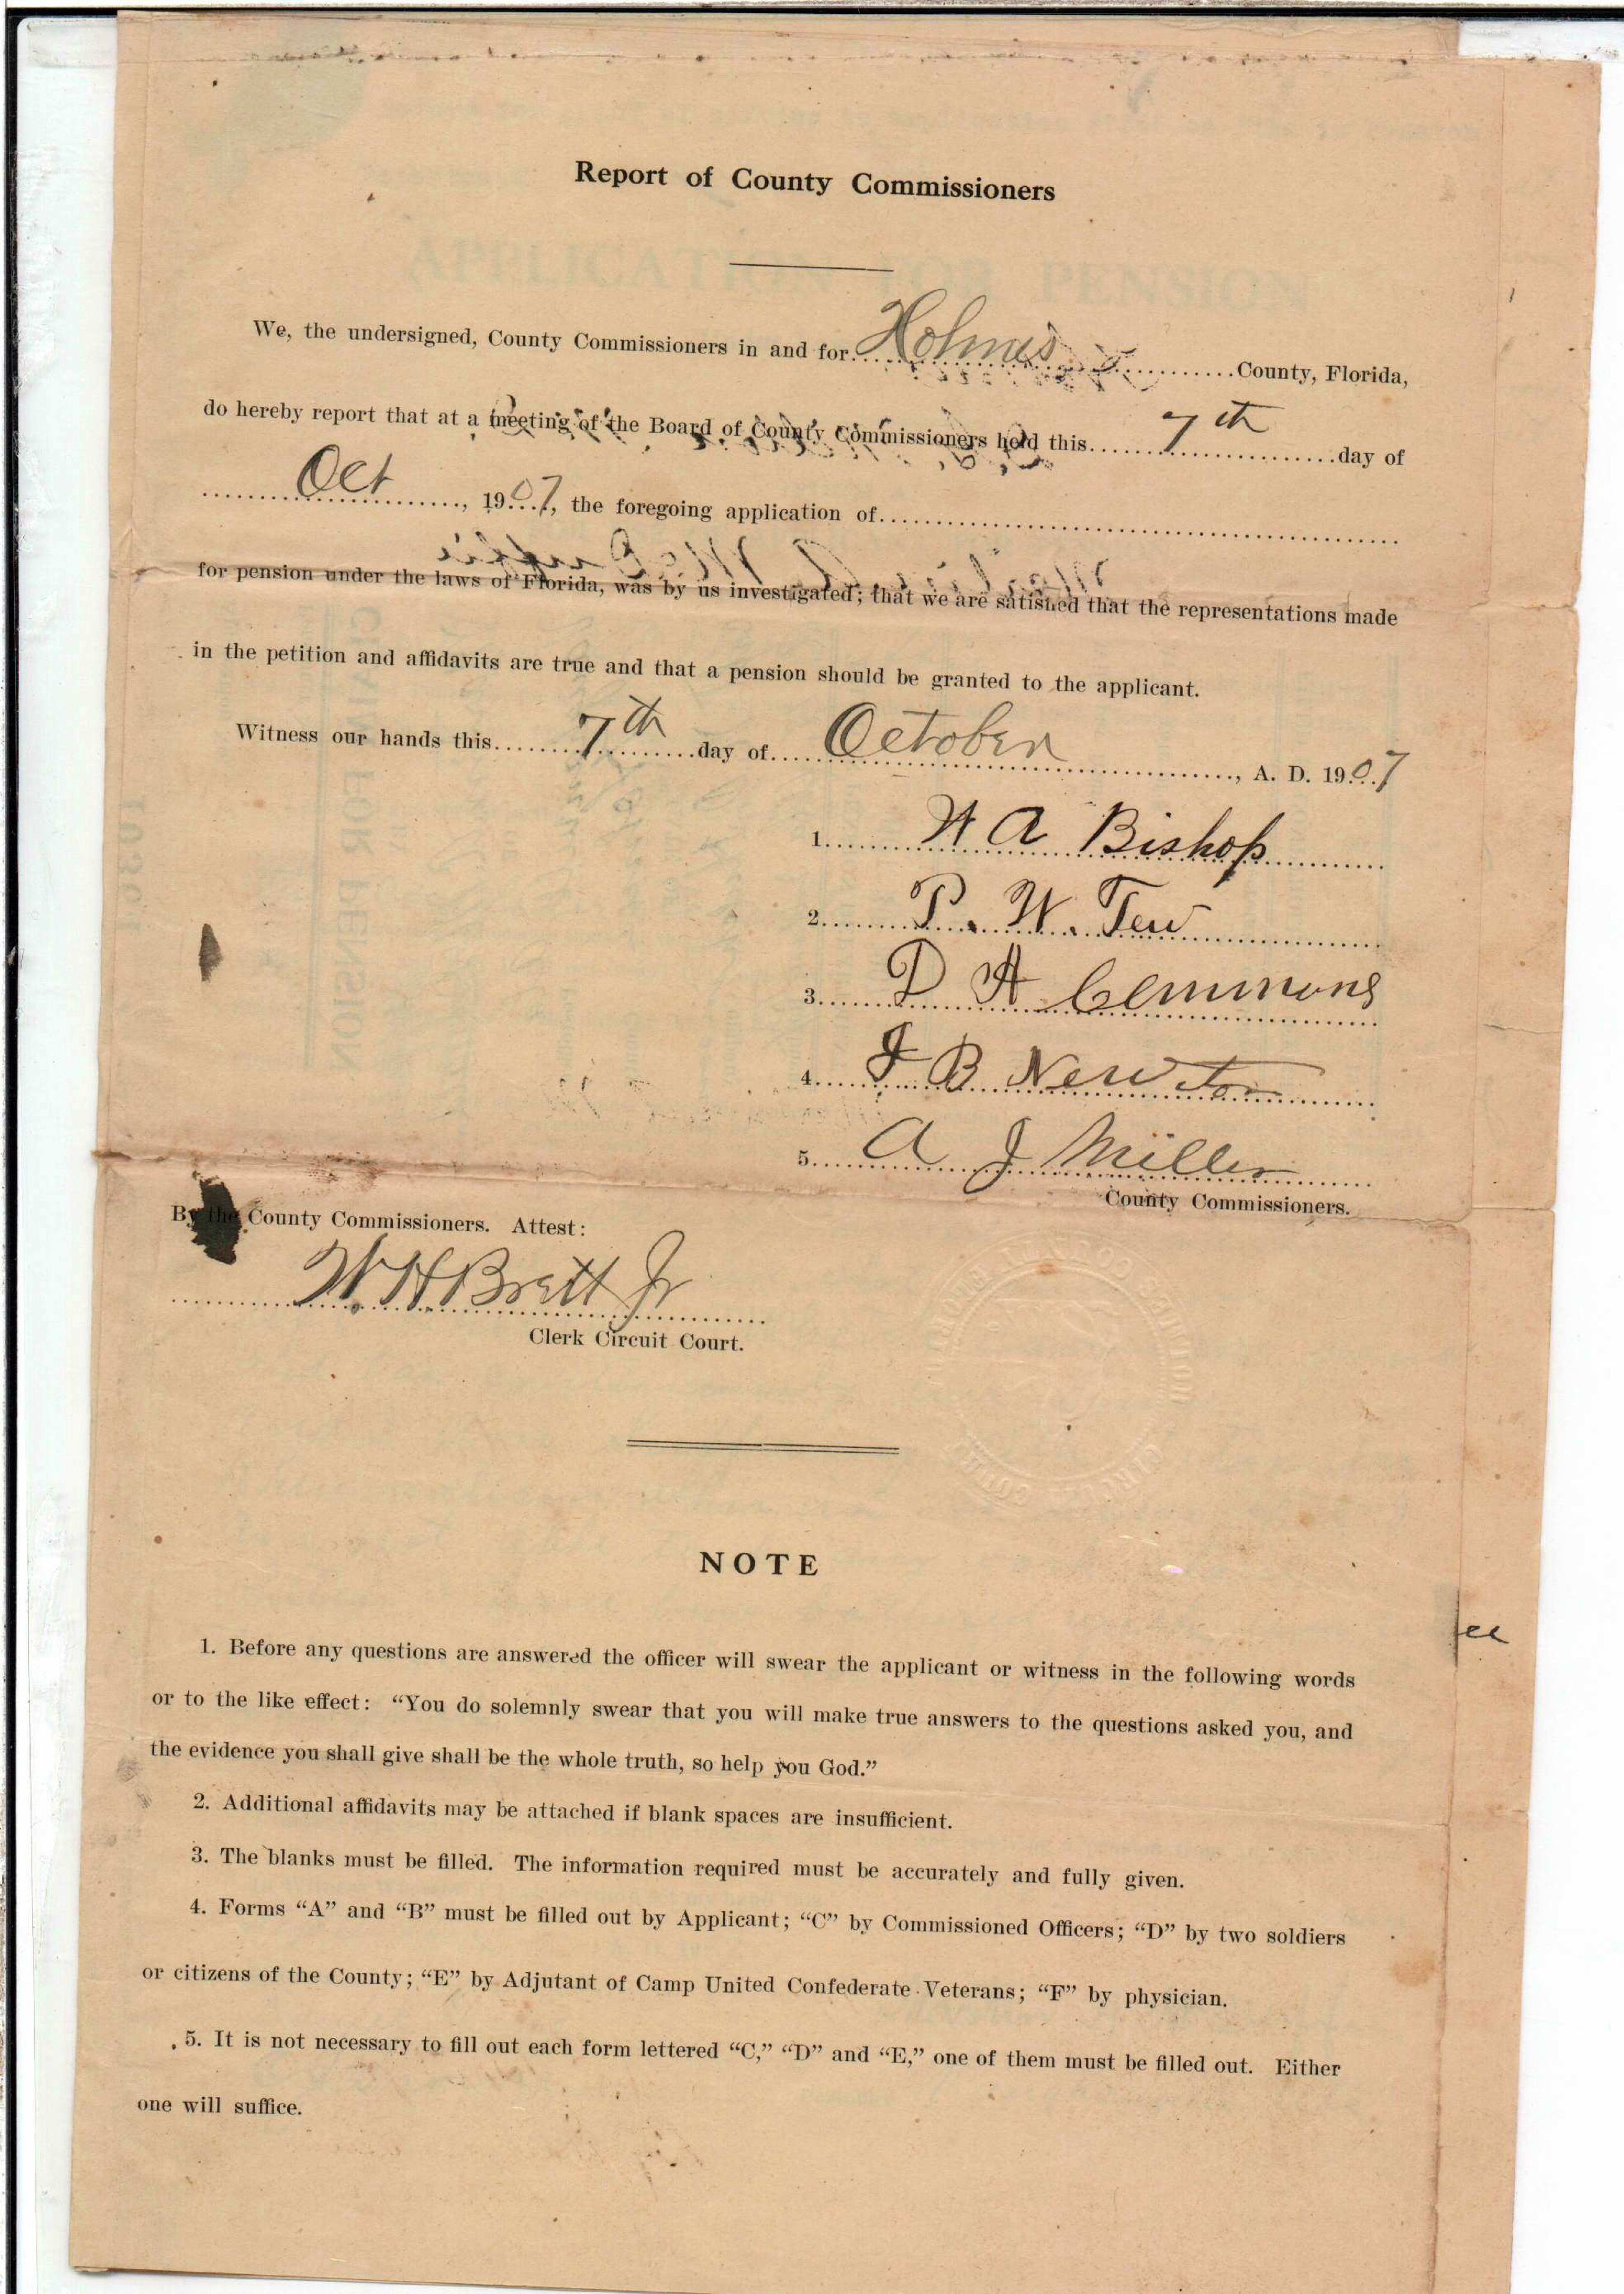 Report of County Commissioners
We, the undersigned, County Commissioners in and for Holmes County, Florida,
do hereby report that at a meeting of the Board of County Commissioners held this 7th day of
Oct, 1907, the foregoing application of
for pension under the laws of Florida, was by us investigated; that we are satisfied that the representations made
in the petition and affidavits are true and that a pension should be granted to the applicant.
Witness our hands this 7th day of October, A. D. 1907
1. W A Bishop
2. P. W. Tew
3. D A Clemmons
4. J B Newton
5. A J Miller
County Commissioners.
By the County Commissioners. Attest:
W H Brett Jr
Clerk Circuit Court.
NOTE
1. Before any questions are answered the officer will swear the applicant or witness in the following words
or to the like effect: “You do solemnly swear that you will make true answers to the questions asked you, and
the evidence you shall give shall be the whole truth, so help you God.”
2. Additional affidavits may be attached if blank spaces are insufficient.
3. The blanks must be filled. The information required must be accurately and fully given.
4. Forms “A” and “B” must be filled out by Applicant; “C” by Commissioned Officers; “D” by two soldiers
or citizens of the County; “E” by Adjutant of Camp United Confederate Veterans; “F” by physician.
5. It is not necessary to fill out each form lettered “C,” “D” and “E,” one of them must be filled out. Either
one will suffice.